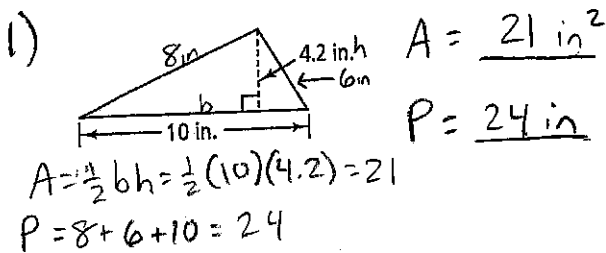 1)
8in
4.2 in. h
6in
b
10 in.
A = 21 in²
P = 24 in
A = ½ bh = ½ (10)(4.2) = 21
P = 8 + 6 + 10 = 24